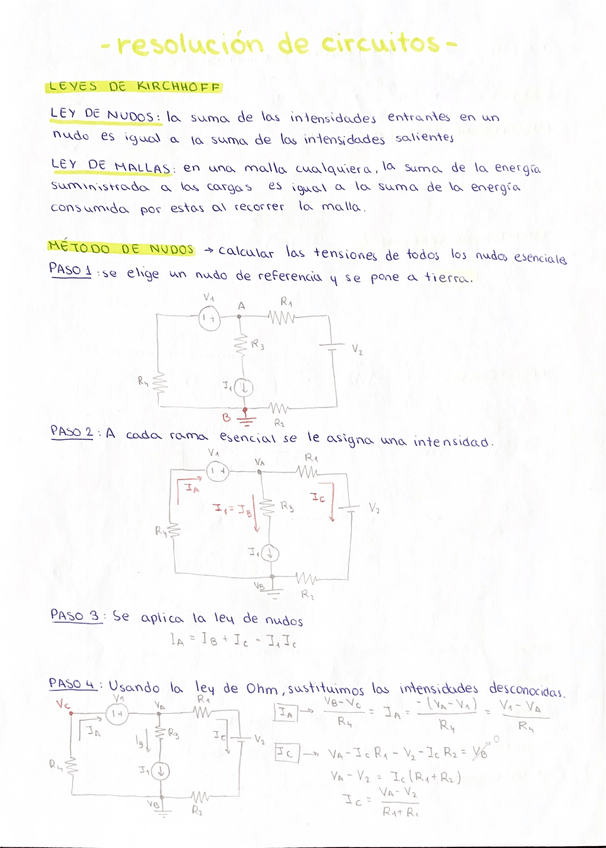 -resolución de circuitos-
LEYES DE KIRCHHOFF
LEY DE NUDOS: la suma de las intensidades entrantes en un
nudo es igual a la suma de las intensidades salientes
LEY DE MALLAS: en una malla cualquiera, la suma de la energía
suministrada a las cargas es igual a la suma de la energía
consumida por estas al recorrer la malla.
MÉTODO DE NUDOS → calcular las tensiones de todos los nudos esenciales
PASO 1: se elige un nudo de referencia y se pone a tierra.
V1 A R1
R3 V2
R4 I1
B R2
PASO 2: A cada rama esencial se le asigna una intensidad.
V1 VA R1
IA I1 = IB R3 IC V2
R4 I1
VB R2
PASO 3: Se aplica la ley de nudos
IA = IB + IC - I1 IC
PASO 4: Usando la ley de Ohm, sustituimos las intensidades desconocidas.
VC V1 VA R1
IA IB R3 IC V2
R4 I1
VB R2
IA → VB-VC / R4 = IA = -(VA-V1) / R4 = V1-VA / R4
IC → VA - IC R1 - V2 - IC R2 = VB 0
VA - V2 = IC (R1+R2)
IC = VA-V2 / R1+R2